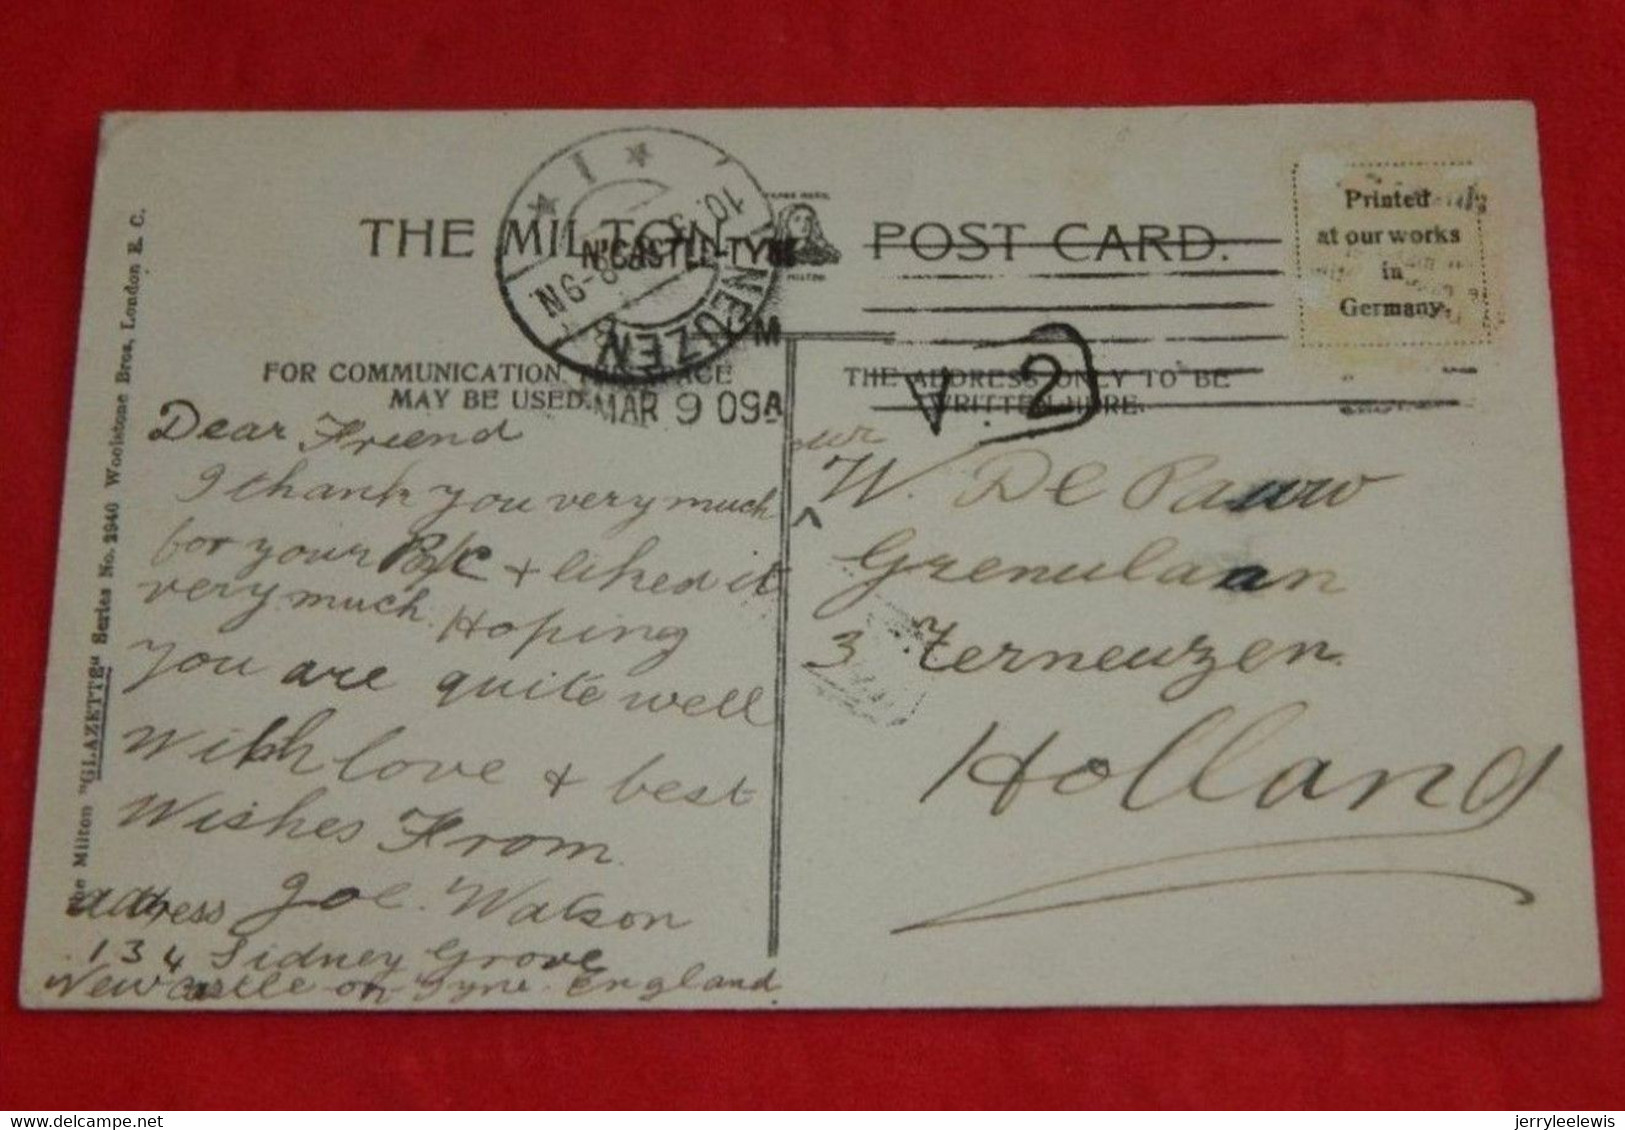 THE MILTON POST CARD.
N'CASTLE-TYNE
MAR 9 09
NEUZEN
FOR COMMUNICATION THIS SPACE
MAY BE USED.
THE ADDRESS ONLY TO BE
WRITTEN HERE.
V. 2
Printed
at our works
in
Germany.
The Milton "GLAZETTE" Series No. 2940 Woolstone Bros, London E. C.
Dear Friend
I thank you very much
for your P/c + liked it
very much. Hoping
you are quite well
With love + best
Wishes From
Joe. Watson
address
134 Sidney Grove
Newcastle on Tyne England.
W. De Pauw
Grenulaan
3 Terneuzen
Holland
jerryleelewis